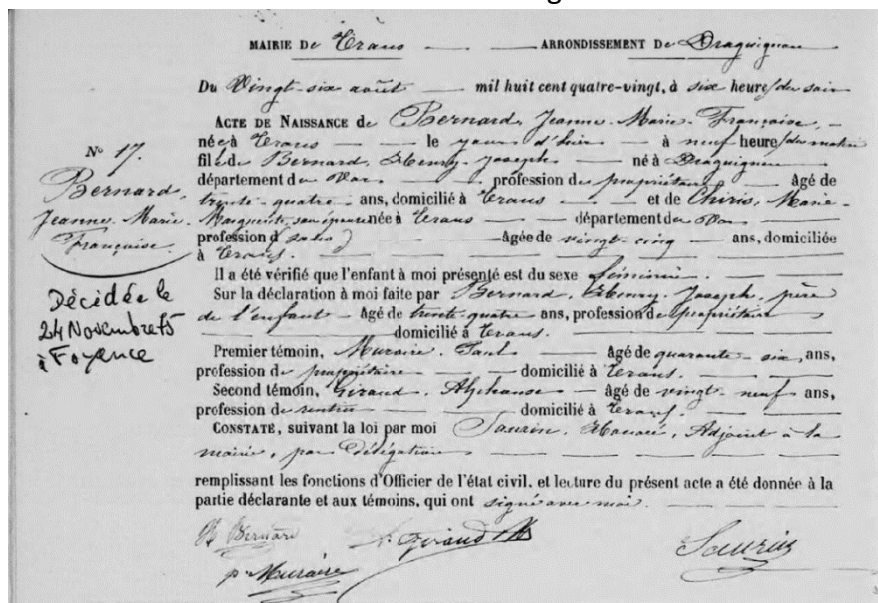 MAIRIE De Trans ARRONDISSEMENT De Draguignan
Du Vingt-six août mil huit cent quatre-vingt, à six heures du soir
ACTE DE NAISSANCE de Bernard, Jeanne-Marie-Française,
née à Trans le jour d'hier à neuf heures du matin
fille de Bernard, Henry-Joseph né à Draguignan
département du Var profession de propriétaire Agé de
trente-quatre ans, domicilié à Trans et de Chiris, Marie-
Marguerite, son épouse née à Trans département du Var
profession d âgée de vingt-cinq ans, domiciliée
à Trans.
Il a été vérifié que l'enfant à moi présenté est du sexe féminin.
Sur la déclaration à moi faite par Bernard, Henry-Joseph, père
de l'enfant Agé de trente-quatre ans, profession de propriétaire
domicilié à Trans.
Premier témoin, Muraire, Paul âgé de quarante-six, ans,
profession de propriétaire domicilié à Trans.
Second témoin, Giraud, Alphonse âgé de vingt-neuf ans,
profession de rentier domicilié à Trans.
CONSTATÉ, suivant la loi par moi Saurin, Honoré, Adjoint à la
mairie, par Délégation
remplissant les fonctions d'Officier de l'état civil, et lecture du présent acte a été donnée à la
partie déclarante et aux témoins, qui ont signé avec moi.
N° 17.
Bernard,
Jeanne-Marie-
Française.
Décédée le
24 Novembre
à Fayence
H Bernard
Giraud
Saurin
p. Muraire